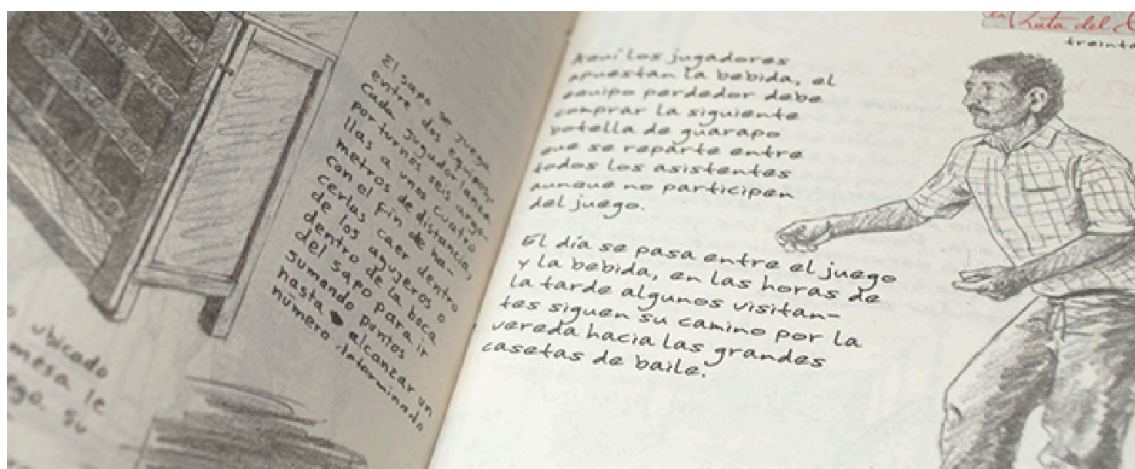 ubicado
mesa le
su
El sapo se juega
entre dos equipos.
Cada jugador lanza
por turnos seis argo-
llas a unos cuatro
metros de distancia,
con el fin de ha-
cerlas caer dentro
de los agujeros o
dentro de la boca
del sapo para ir
sumando puntos
hasta alcanzar un
número
Ruta del
Aquí los jugadores
apuestan la bebida, el
equipo perdedor debe
comprar la siguiente
botella de guarapo
que se reparte entre
todos los asistentes
aunque no participen
del juego.
El día se pasa entre el juego
y la bebida, en las horas de
la tarde algunos visitan-
tes siguen su camino por la
vereda hacia las grandes
casetas de baile.